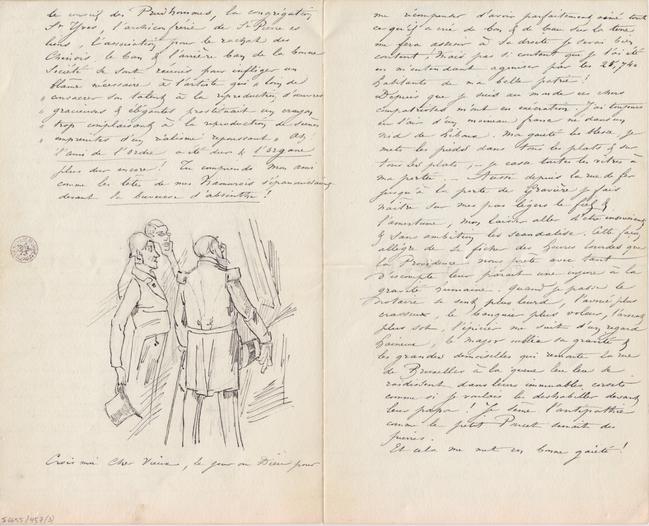 le conseil des Prudhommes, la congrégation
St Yves, l'archiconfrérie de St Pierre es
liens, l'association pour le rachat des
Chinois, le ban & l'arrière ban de la bonne
Société se sont réunis pour infliger un
blame nécessaire à l'artiste qui « loin de
« consacrer son talent à la reproduction d'œuvres
« gracieuses & élégantes prostituait un crayon
« trop complaisant à la reproduction de scènes
« empreintes d'un réalisme repoussant »
l'ami de l'Ordre a été dur & l'organe
plus dur encore! Tu comprends mon ami
comme les têtes de mes Namurois s'épanouissaient
devant la buveuse d'absinthe!
Crois moi cher Vieux, le jour ou Dieu pour
me récompenser d'avoir parfaitement aimé tout
ce qu'il a crée de bon & de beau sur la terre
me fera asseoir à sa droite je serai bien
content! Mais pas si content que je l'ai été
en m'entendant agoniser par les 25,740
habitants de ma belle patrie!
Depuis que je suis au monde ces chers
compatriotes m'ont en exécration. J'ai toujours
eu l'air d'un moineau franc né dans un
nid de hiboux. Ma gaieté les blesse je
mets les pieds dans tous les plats & sur
tous les plats, — je casse toutes les vitres à
ma portée. — Aussi depuis la rue de fer
jusqu'à la porte de Gravière je fais
naître sur mes pas légers le fiel &
l'amertume, mon laisser aller d'être insouciant
& sans ambition les scandalise. Cette façon
allègre de se ficher des heures lourdes que
la Providence nous prête avec tant
d'escompte leur parait une injure à la
gravité humaine. Quand je passe le
notaire se sent plus lourd, l'avoué plus
crasseux, le banquier plus voleur, l'avocat
plus sot, l'épicier me suit d'un regard
haineux, le major sa gravité &
les grandes demoiselles qui remonte la rue
de Bruxelles à la queue leu leu se
raidissent dans leurs immuables corsets
comme si je voulais les déshabiller devant
leur papa! Je sème l'antipathie
comme le petit Poucet semait des
pierres.
Et cela me met en bonne gaieté!